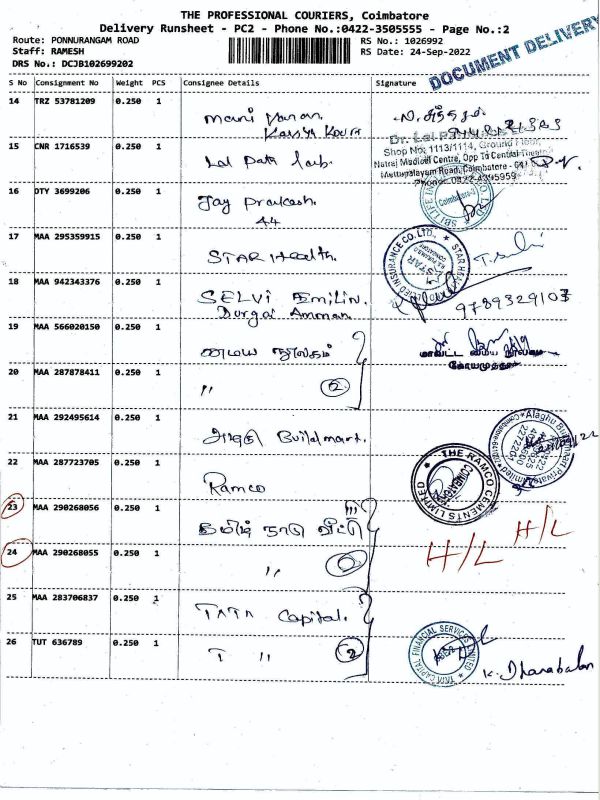 THE PROFESSIONAL COURIERS, Coimbatore
Delivery Runsheet - PC2 - Phone No.:0422-3505555 - Page No.:2
Route: PONNURANGAM ROAD
Staff: RAMESH
DRS No.: DCJB102699202
RS No.: 1026992
RS Date: 24-Sep-2022
DOCUMENT DELIVERY
S No Consignment No Weight PCS Consignee Details Signature
14 TRZ 53781209 0.250 1
15 CNR 1716539 0.250 1 Lal Path Lab.
Dr. Lal
Shop No: 1113/1114, Ground Floor,
Natraj Medical Centre, Opp To Central Theatre
Mettupalayam Road, Coimbatore
Phone: 0422 4395959
16 DTY 3699206 0.250 1 Jay Prakash.
44
SBI LIFE
Coimbatore
17 MAA 295359915 0.250 1 STAR Health.
STAR HEALTH INSURANCE CO. LTD.
18 MAA 942343376 0.250 1 SELVI Emilin.
Durgai Amman
9789329107
19 MAA 566020150 0.250 1 மைய நூலகம்
மாவட்ட மைய நூலகம்
கோயமுத்தூர்
20 MAA 287878411 0.250 1 " 2
21 MAA 292495614 0.250 1 அழகு Buildmart.
22 MAA 287723705 0.250 1 Ramco
THE RAMCO CEMENTS LIMITED
23 MAA 290268056 0.250 1 தமிழ் நாடு வீட்டு
H/L
24 MAA 290268055 0.250 1 "
H/L
25 MAA 283706837 0.250 1 TATA Capital.
26 TUT 636789 0.250 1 T " 2
TATA CAPITAL FINANCIAL SERVICES LIMITED
K. Dhanabalan